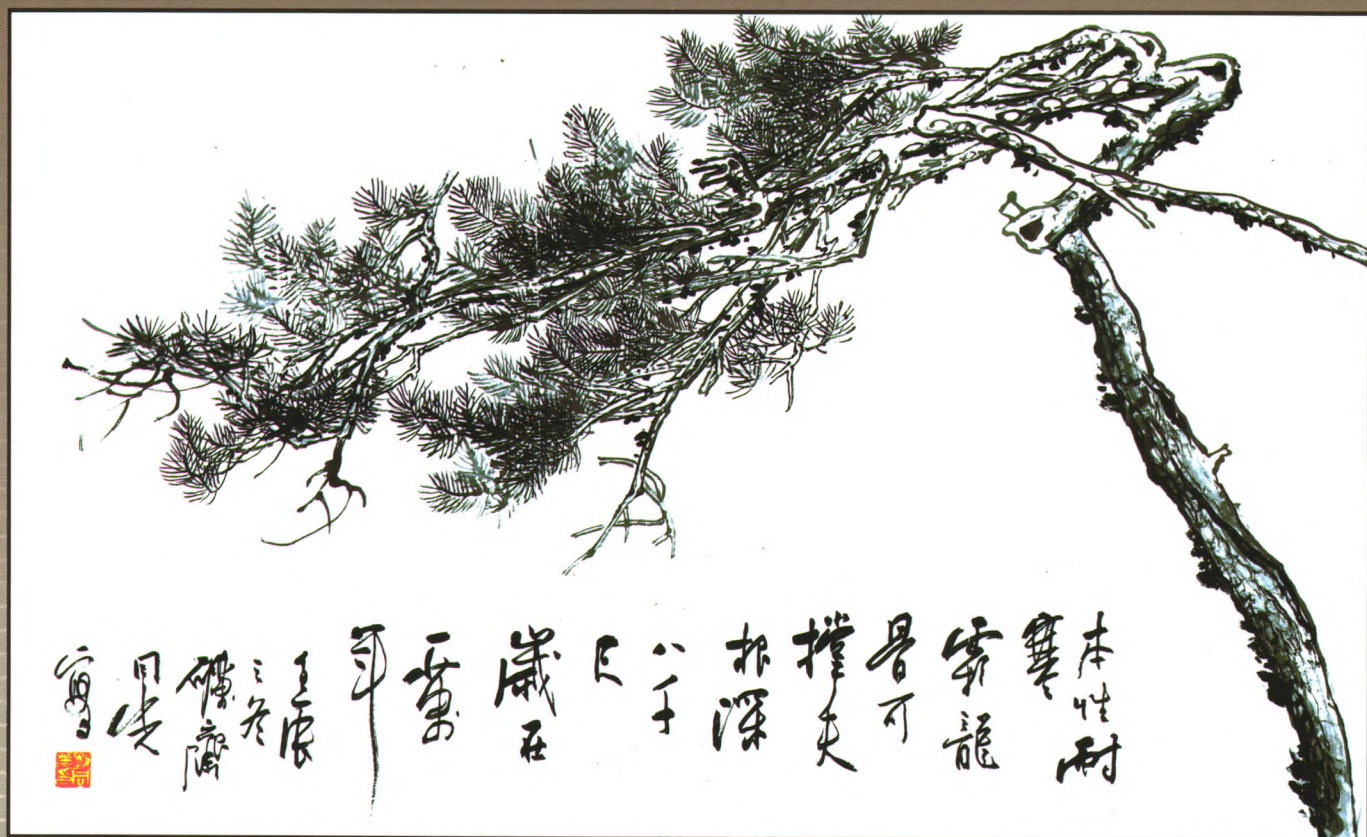 本性耐
寒
霜龍
骨可
撑天
根深
八千
尺
歲在
一萬
年
壬辰
之冬
礦齋
同光
寫